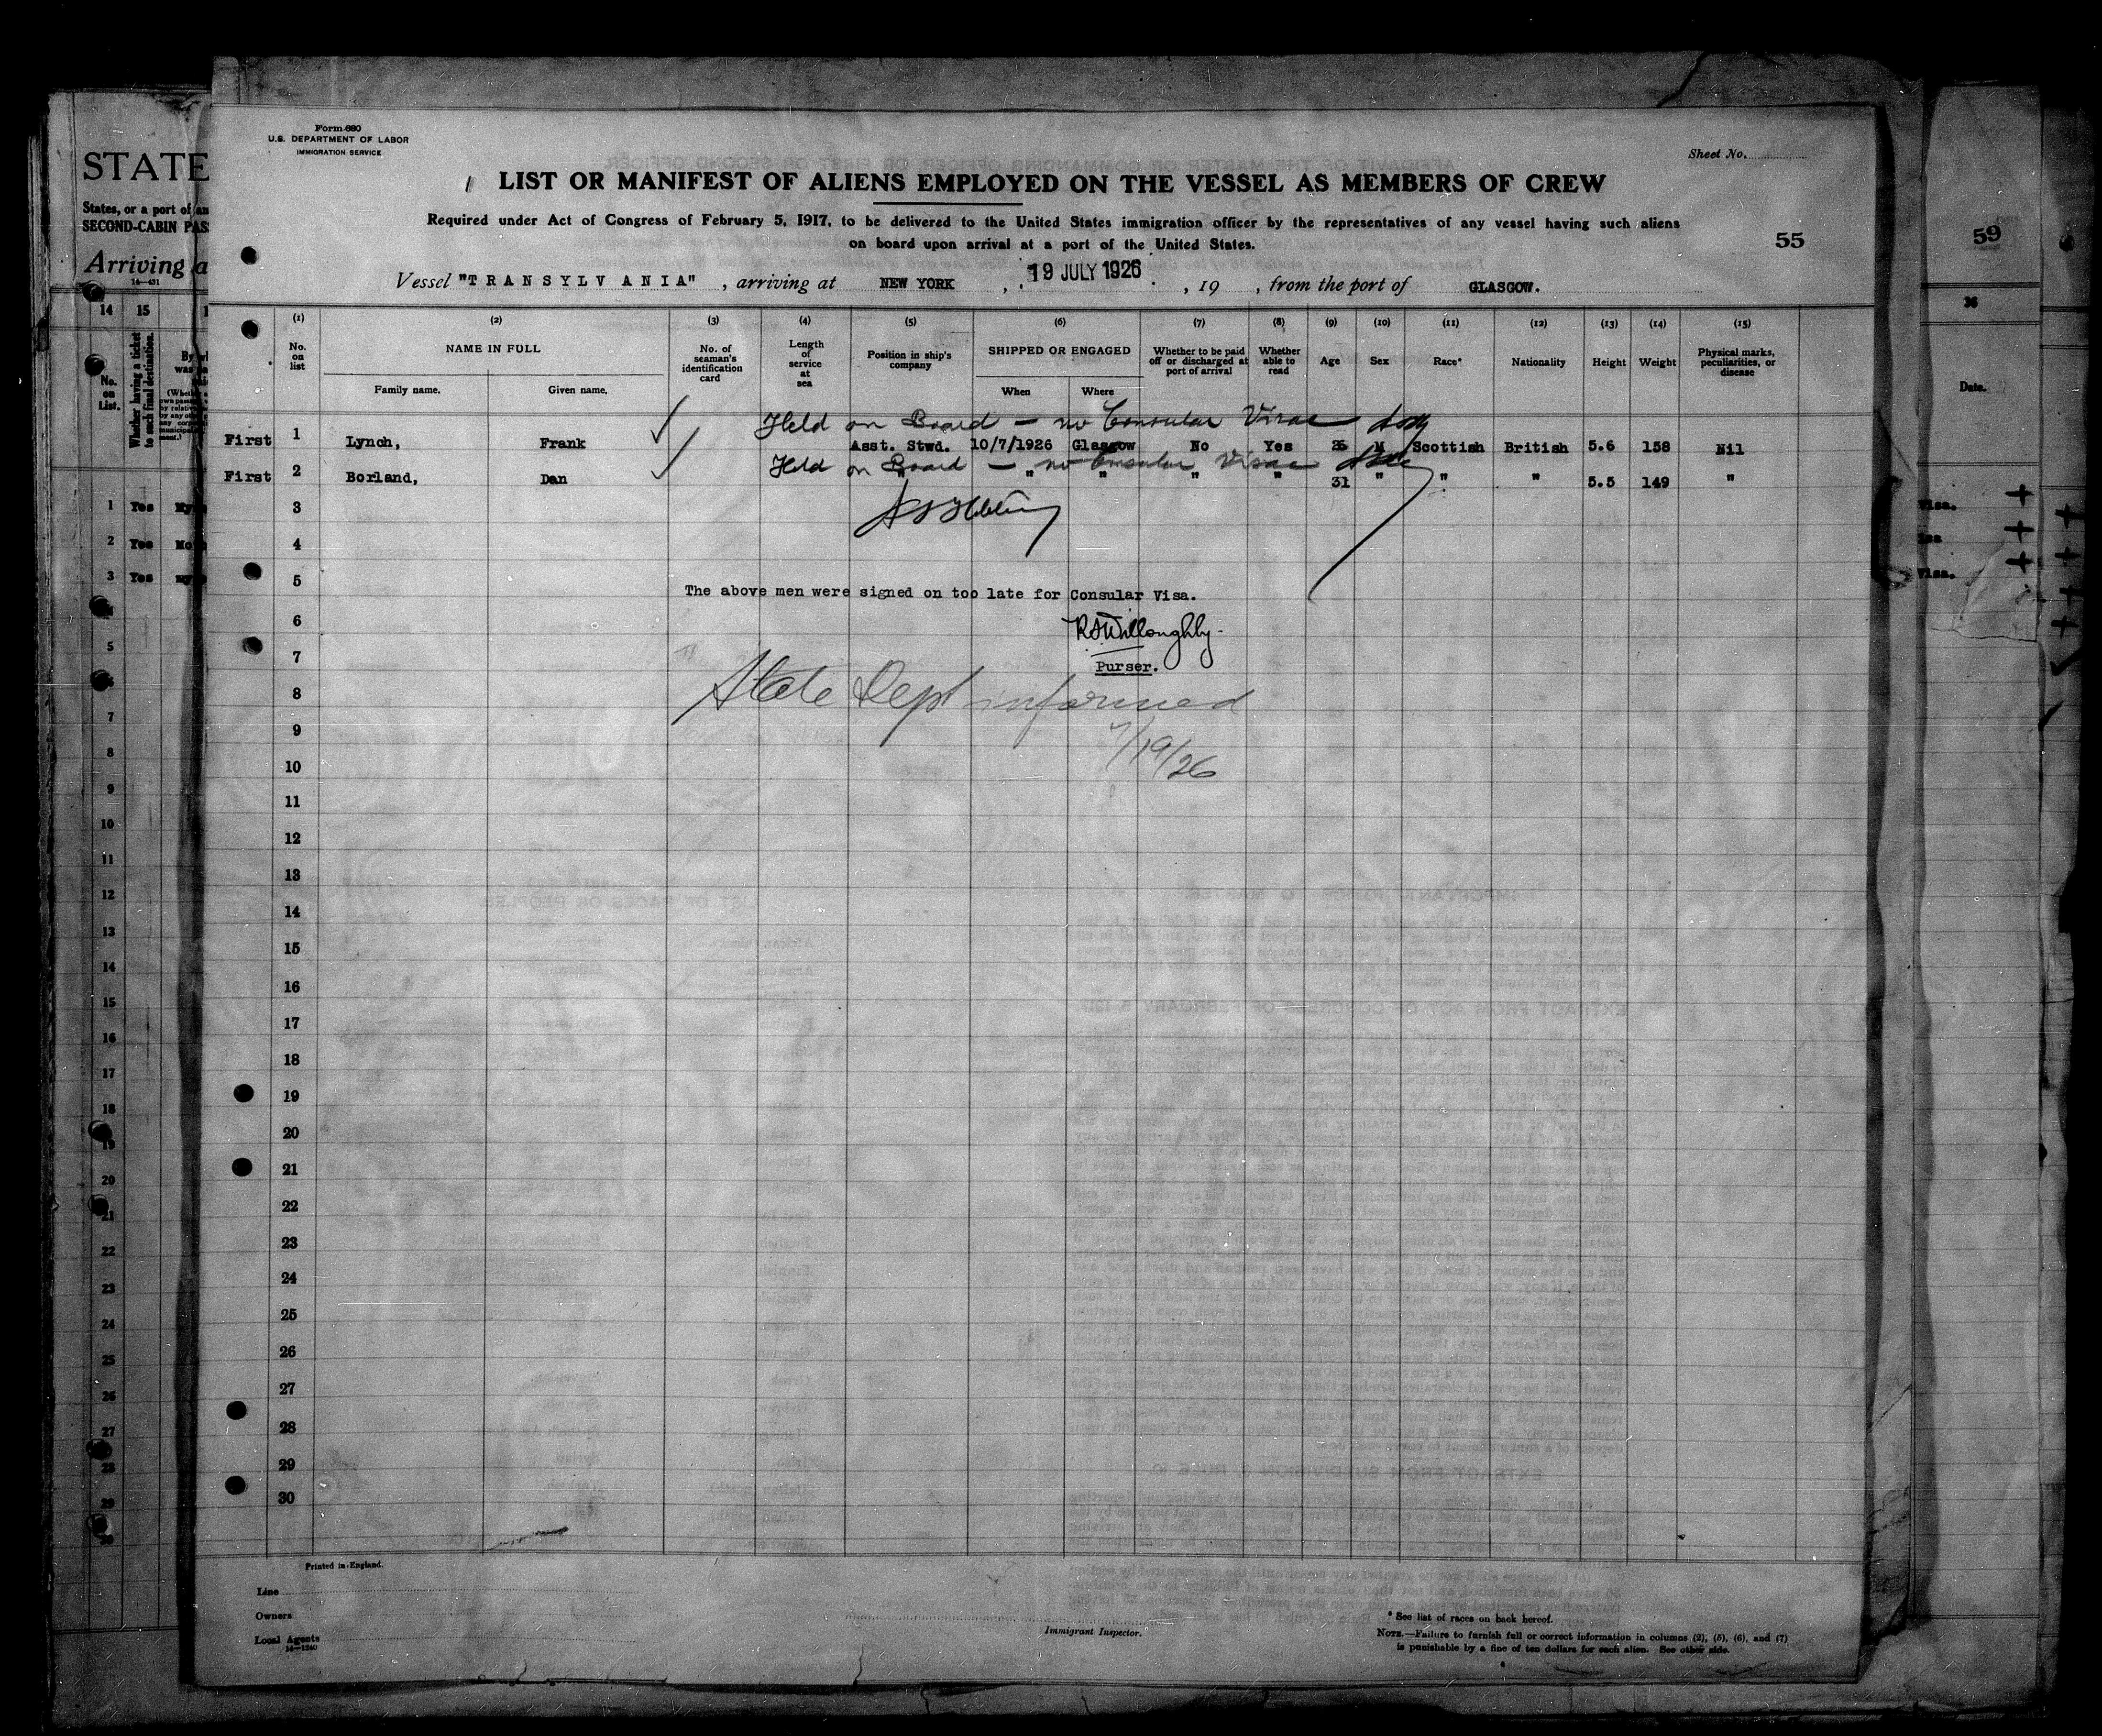 Form 680
U.S. DEPARTMENT OF LABOR
IMMIGRATION SERVICE
Sheet No.
LIST OR MANIFEST OF ALIENS EMPLOYED ON THE VESSEL AS MEMBERS OF CREW
Required under Act of Congress of February 5, 1917, to be delivered to the United States immigration officer by the representatives of any vessel having such aliens
on board upon arrival at a port of the United States.
55
Vessel "TRANSYLVANIA", arriving at NEW YORK, 19 JULY 1926, 19 , from the port of GLASGOW.
(1) (2) (3) (4) (5) (6) (7) (8) (9) (10) (11) (12) (13) (14) (15)
No. on list
NAME IN FULL
Family name. Given name.
No. of seaman's identification card
Length of service at sea
Position in ship's company
SHIPPED OR ENGAGED
When Where
Whether to be paid off or discharged at port of arrival
Whether able to read
Age
Sex
Race*
Nationality
Height
Weight
Physical marks, peculiarities, or disease
Held on Board - no Consular Visae
First 1 Lynch, Frank Asst. Stwd. 10/7/1926 Glasgow No Yes 26 M Scottish British 5.6 158 Nil
Held on Board - no Consular Visae
First 2 Borland, Dan " " " " " 31 " " " 5.5 149 "
3
4
5
The above men were signed on too late for Consular Visa.
6
RSWilloughby
7
Purser.
8
State Dept informed
9
7/19/26
10
11
12
13
14
15
16
17
18
19
20
21
22
23
24
25
26
27
28
29
30
Printed in England.
Line
Owners
Local Agents
14-1240
Immigrant Inspector.
* See list of races on back hereof.
NOTE.—Failure to furnish full or correct information in columns (2), (5), (6), and (7)
is punishable by a fine of ten dollars for each alien. See other side.
STATE
States, or a port of an
SECOND-CABIN PAS
Arriving a
14-431
14 15
No. on List.
Whether having a ticket to such final destination.
1 Yes
2 Yes
3 Yes
5
7
8
9
10
11
12
13
14
15
16
17
18
19
20
21
22
23
24
25
26
27
28
29
59
36
Date.
Visa.
Visa.